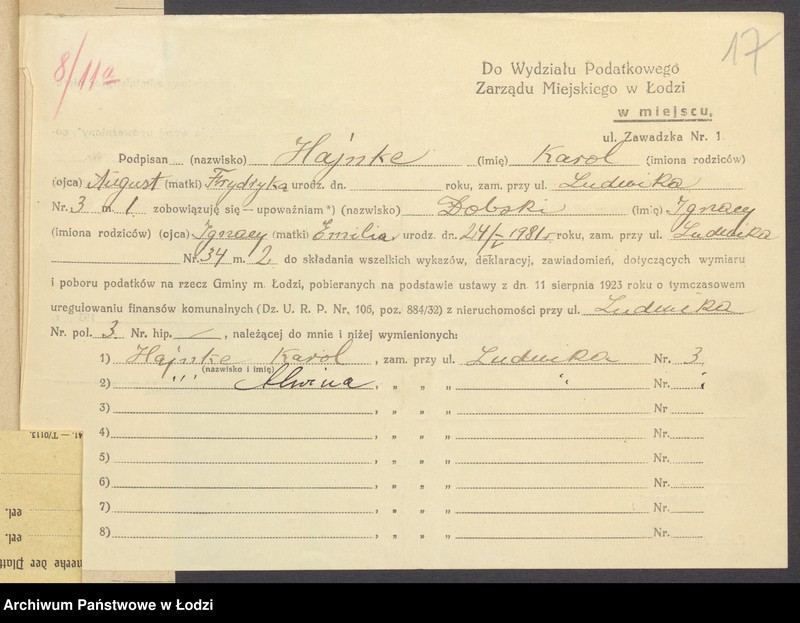 8/11a
17
Do Wydziału Podatkowego
Zarządu Miejskiego w Łodzi
w miejscu,
ul. Zawadzka Nr. 1
Podpisan (nazwisko) Hajnke (imię) Karol (imiona rodziców)
(ojca) August (matki) Frydryka urodz. dn. roku, zam. przy ul. Ludwika
Nr. 3 m. 1 zobowiązuję się — upoważniam *) (nazwisko) Dobski (imię) Ignacy
(imiona rodziców) (ojca) Ignacy (matki) Emilia urodz. dn. 24/I 1981 roku, zam. przy ul. Ludwika
Nr. 34 m. 2 do składania wszelkich wykazów, deklaracyj, zawiadomień, dotyczących wymiaru
i poboru podatków na rzecz Gminy m. Łodzi, pobieranych na podstawie ustawy z dn. 11 sierpnia 1923 roku o tymczasowem
uregulowaniu finansów komunalnych (Dz. U. R. P. Nr. 106, poz. 884/32) z nieruchomości przy ul. Ludwika
Nr. pol. 3 Nr. hip. — , należącej do mnie i niżej wymienionych:
1) Hajnke Karol , zam. przy ul. Ludwika Nr. 3
(nazwisko i imię)
2) ,, Alwina , „ „ „ „ Nr. „
3) , „ „ „ Nr
4) , „ „ „ Nr.
5) , „ „ „ Nr.
6) , „ „ „ Nr.
7) , „ „ „ Nr.
8) , „ „ „ Nr.
41. — T/0113.
erl.
erl.
nerke der Platt
Archiwum Państwowe w Łodzi